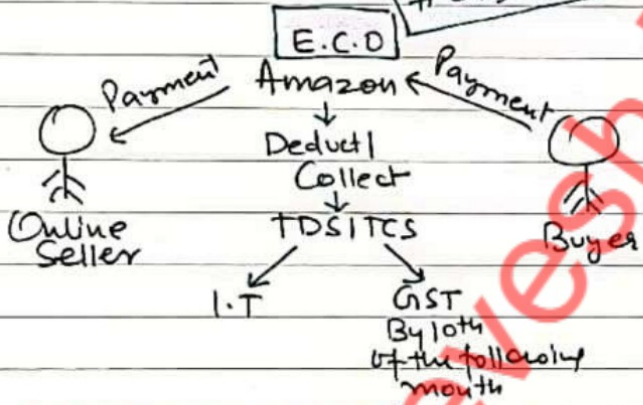 E.C.O
Payment
Amazon
Payment
Deduct/
Collect
Online
Seller
TDS/TCS
Buyer
I.T
GST
By 10th
of the following
month